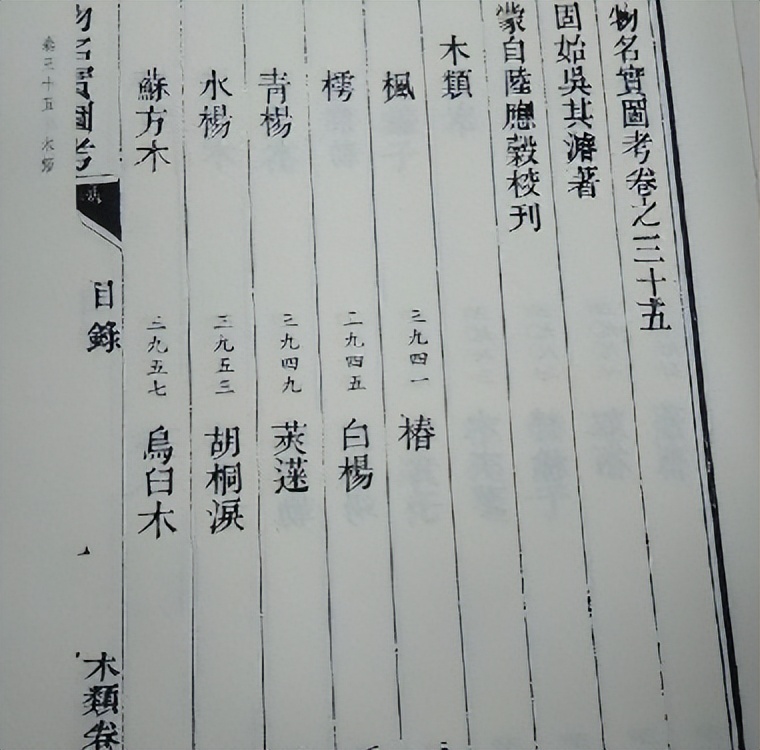 物名實圖考卷之三十五
固始吳其濬著
蒙自陸應穀校刊
木類
楓 三九四一 椿
樗 三九四五 白楊
青楊 三九四九 莢蒾
水楊 三九五三 胡桐淚
蘇方木 三九五七 烏臼木
物名實圖考
目錄
木類卷
卷三十五 木類